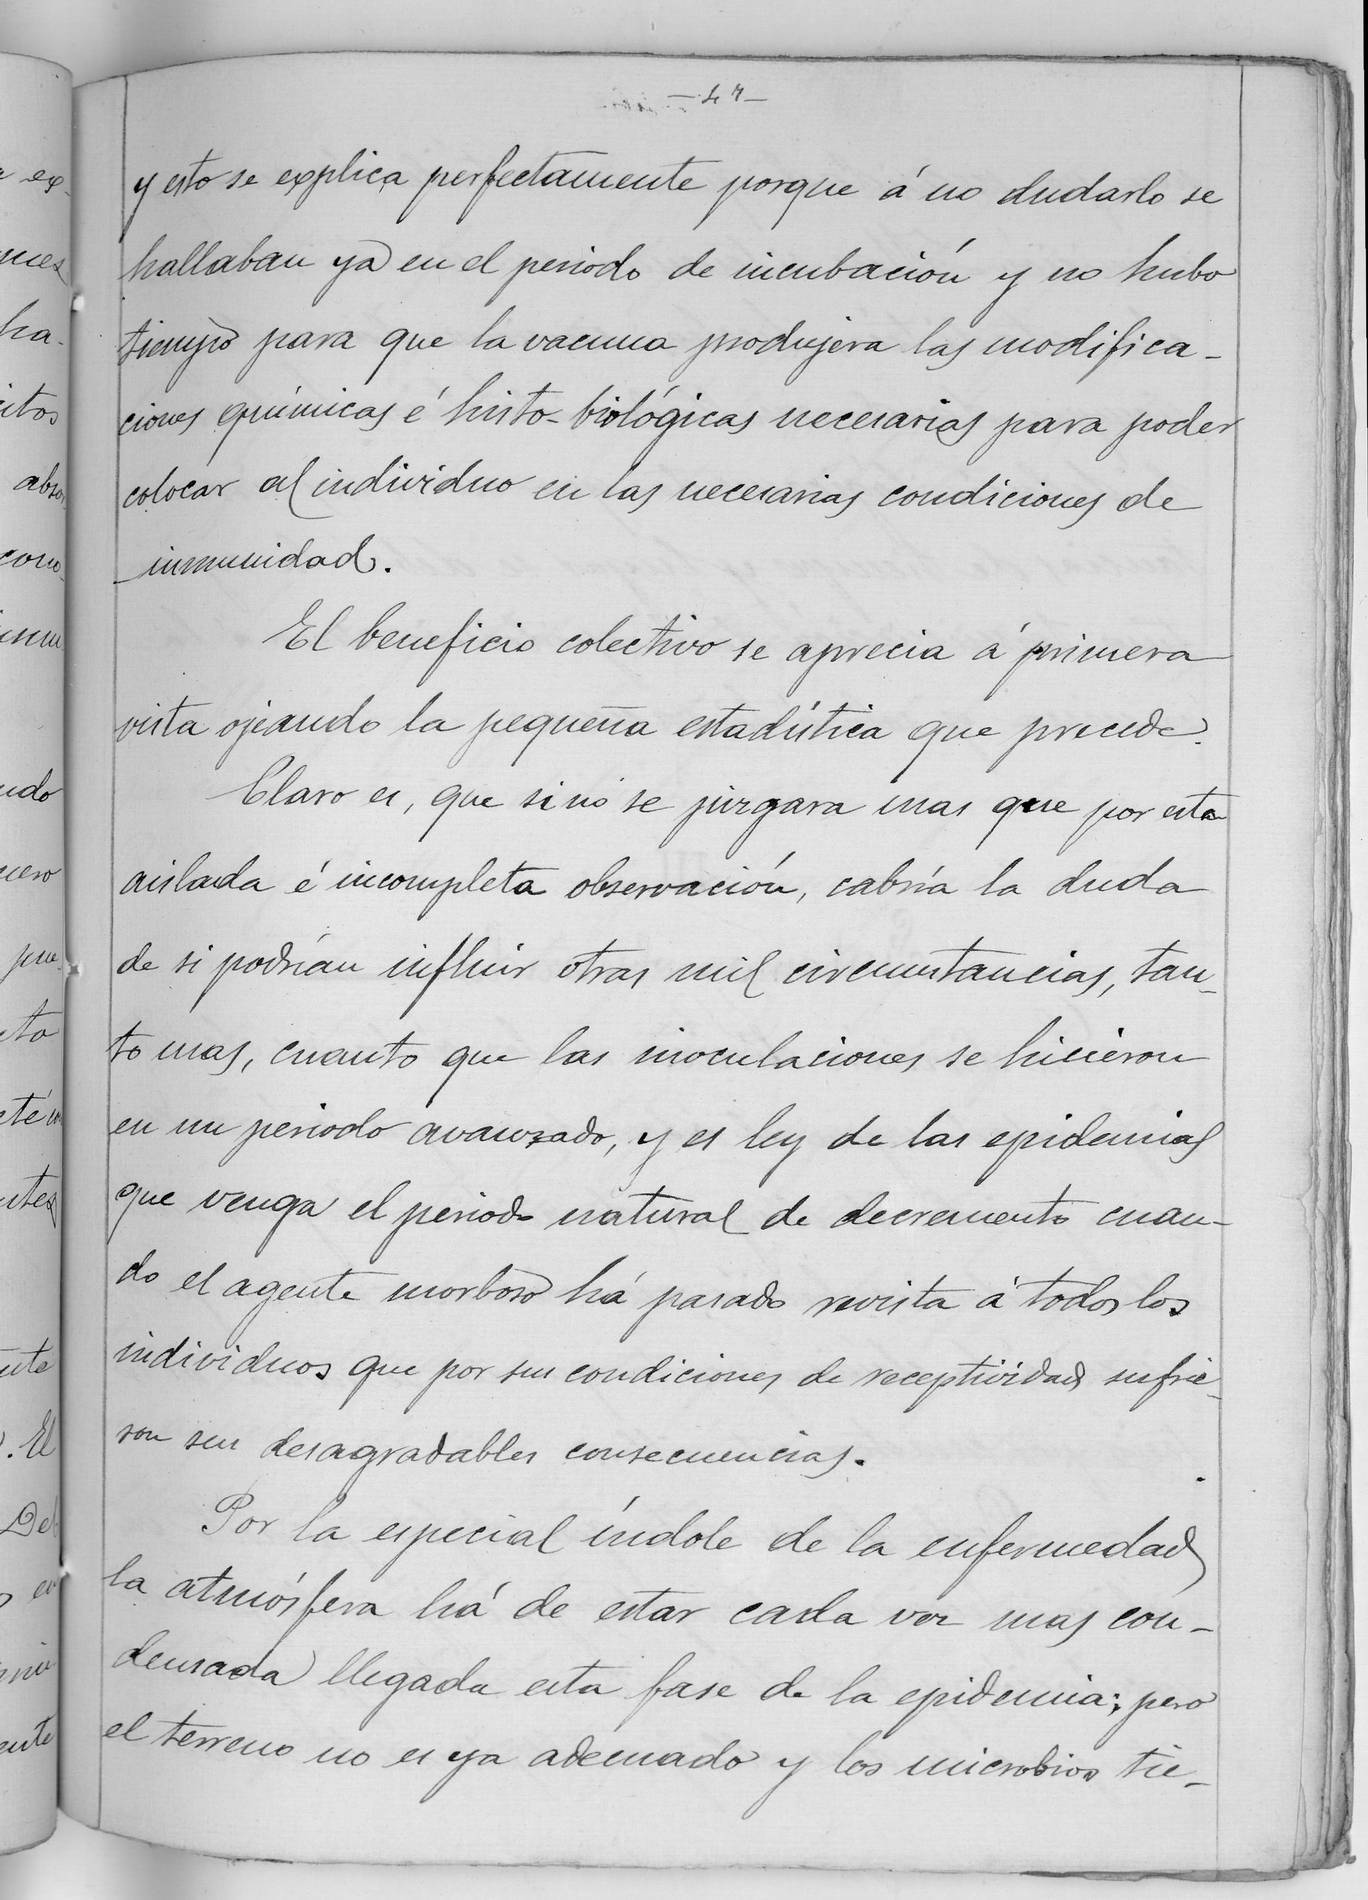 - 47 -
y esto se explica perfectamente porque á no dudarlo se
hallaban ya en el periodo de incubación y no hubo
tiempo para que la vacuna produjera las modifica-
ciones químicas é histo-biológicas necesarias para poder
colocar al individuo en las necesarias condiciones de
inmunidad.
El beneficio colectivo se aprecia á primera
vista ojeando la pequeña estadística que precede.
Claro es, que si no se juzgara mas que por esta
aislada é incompleta observación, cabría la duda
de si podrían influir otras mil circunstancias, tan-
to mas, cuanto que las inoculaciones se hicieron
en un periodo avanzado, y es ley de las epidemias
que venga el periodo natural de decremento cuan-
do el agente morboso há pasado revista á todos los
individuos que por sus condiciones de receptividad sufrie-
ron sus desagradables consecuencias.
Por la especial índole de la enfermedad
la atmósfera há de estar cada vez mas con-
densada llegada esta fase de la epidemia; pero
el terreno no es ya adecuado y los microbios tie-